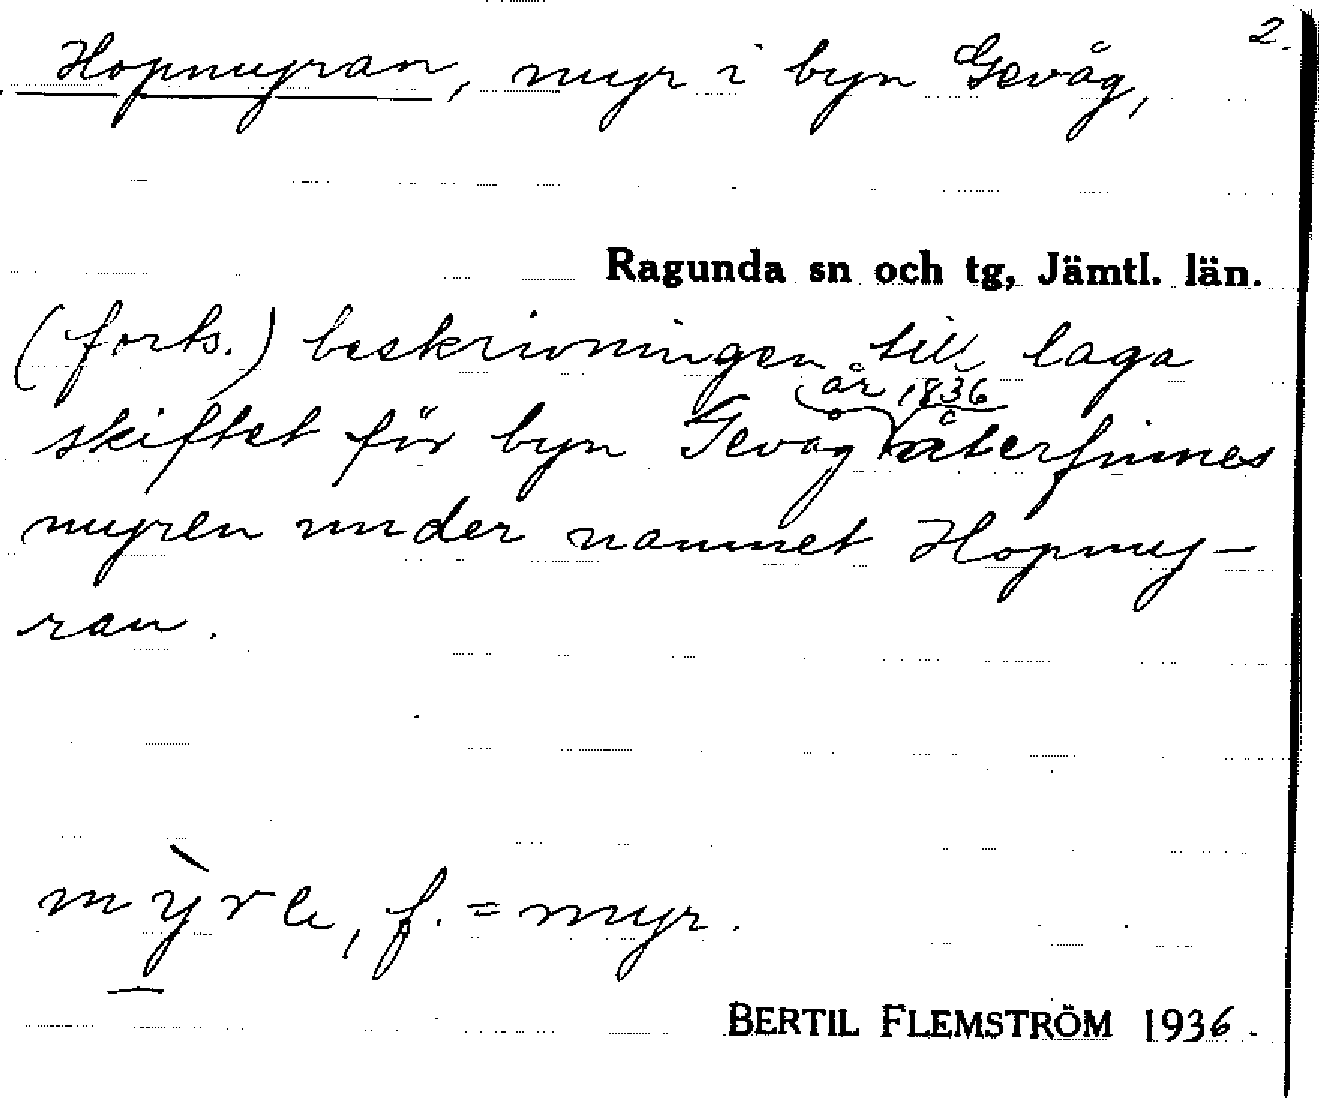 Hopmyran, myr i byn Gevåg,
2.
Ragunda sn och tg, Jämtl. län.
(forts.) beskrivningen till laga
skiftet för byn Gevåg år 1836 återfinnes
myren under namnet Hopmy-
ran.
f. = myr.
BERTIL FLEMSTRÖM 1936.